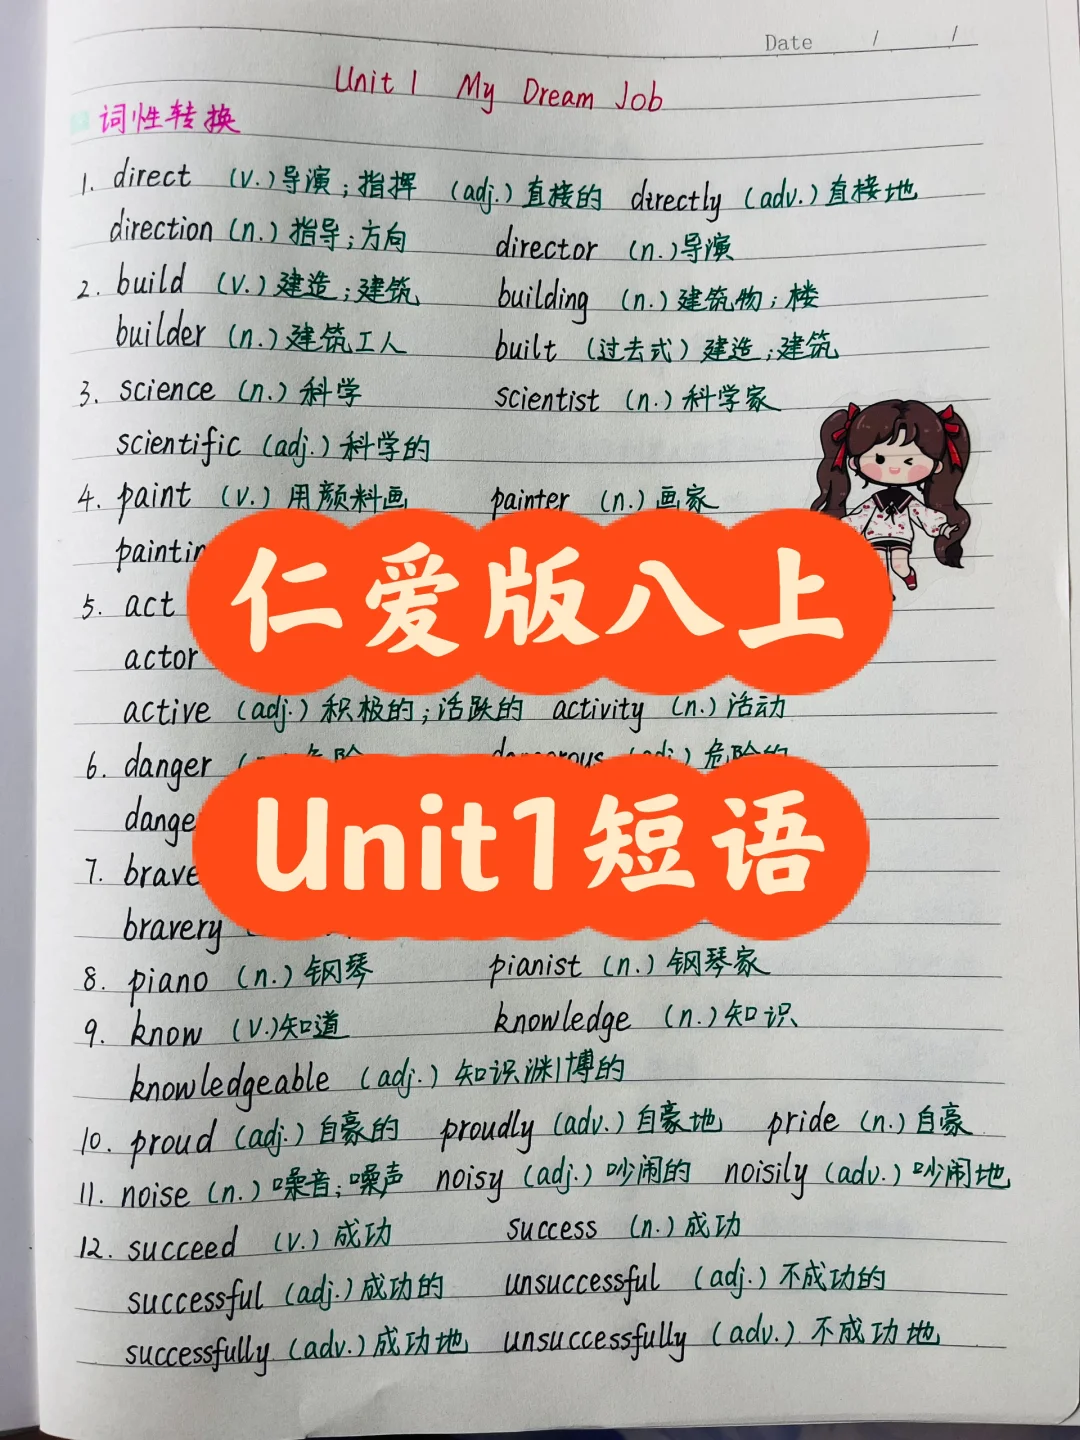 Date / /
Unit 1 My Dream Job
词性转换
1. direct (v.)导演;指挥 (adj.)直接的 directly (adv.)直接地
direction (n.)指导;方向 director (n.)导演
2. build (v.)建造;建筑 building (n.)建筑物;楼
builder (n.)建筑工人 built (过去式)建造;建筑
3. science (n.)科学 scientist (n.)科学家
scientific (adj.)科学的
4. paint (v.)用颜料画 painter (n.)画家
仁爱版八上
5. act
actor
active (adj.)积极的;活跃的 activity (n.)活动
6. danger 危险 dangerous (adj.)危险的
Unit1短语
7. brave
bravery
8. piano (n.)钢琴 pianist (n.)钢琴家
9. know (v.)知道 knowledge (n.)知识
knowledgeable (adj.)知识渊博的
10. proud (adj.)自豪的 proudly (adv.)自豪地 pride (n.)自豪
11. noise (n.)噪音;噪声 noisy (adj.)吵闹的 noisily (adv.)吵闹地
12. succeed (v.)成功 success (n.)成功
successful (adj.)成功的 unsuccessful (adj.)不成功的
successfully (adv.)成功地 unsuccessfully (adv.)不成功地